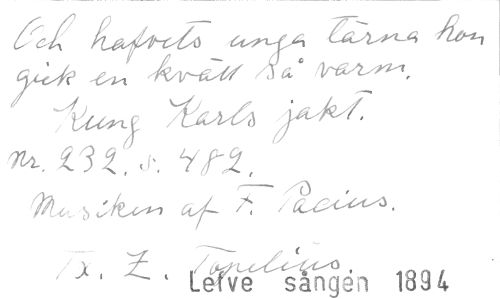 Och hafvets unga tärna hon
gick en kväll så varm.
Kung Karls jakt.
Nr. 232. s. 482.
Musiken af F. Pacius.
Tx. Z. Topelius.
Lefve sången 1894